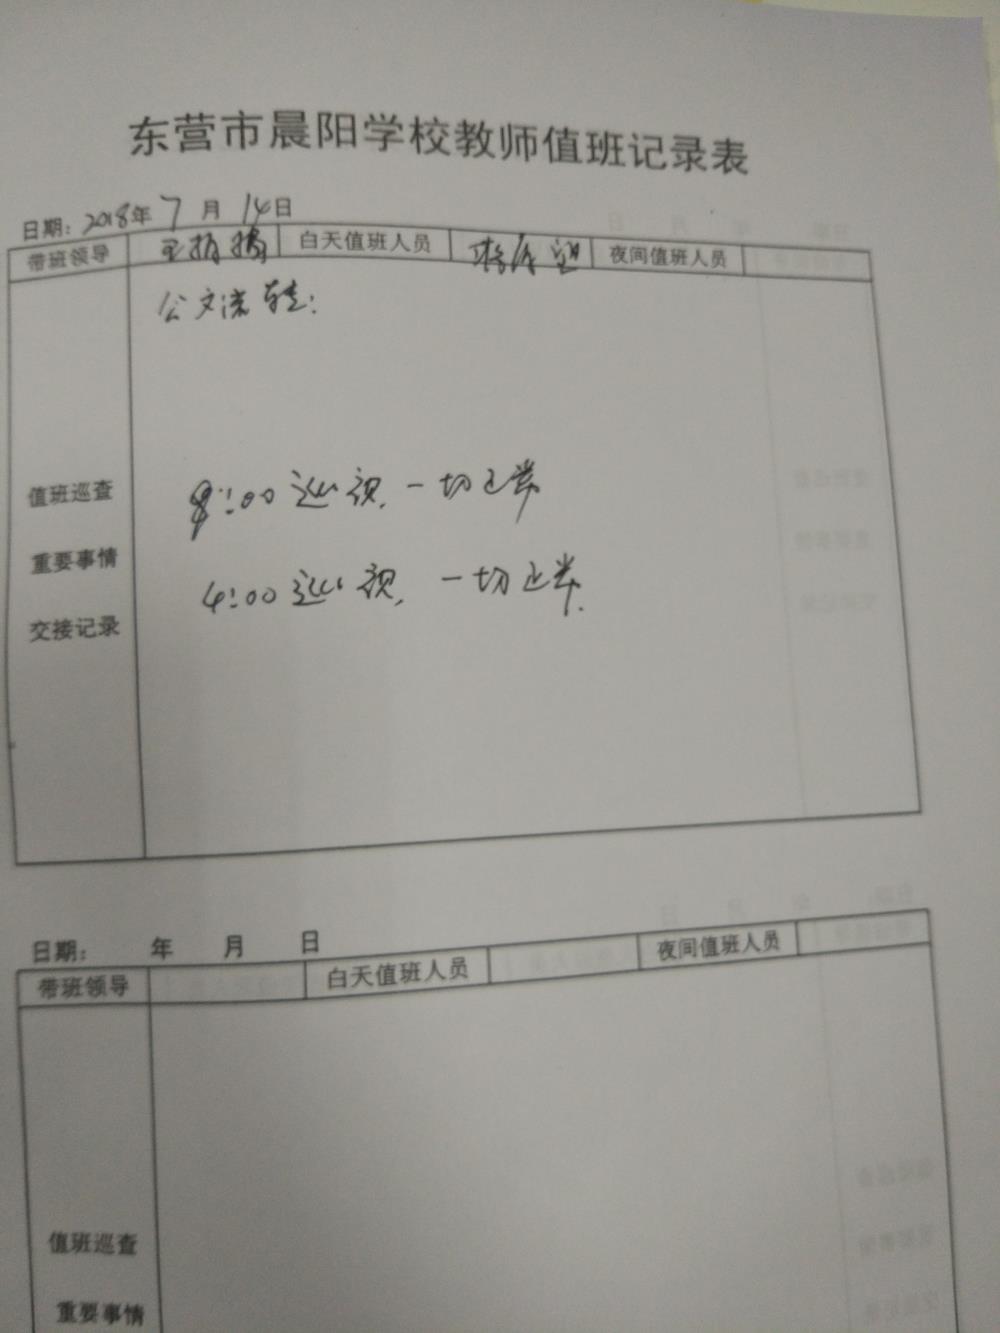 东营市晨阳学校教师值班记录表
日期：2018年 7 月 14日
带班领导 白天值班人员 夜间值班人员
公文流转：
值班巡查
8:00 巡视，一切正常
重要事情
4:00 巡视，一切正常.
交接记录
日期： 年 月 日
带班领导 白天值班人员 夜间值班人员
值班巡查
重要事情